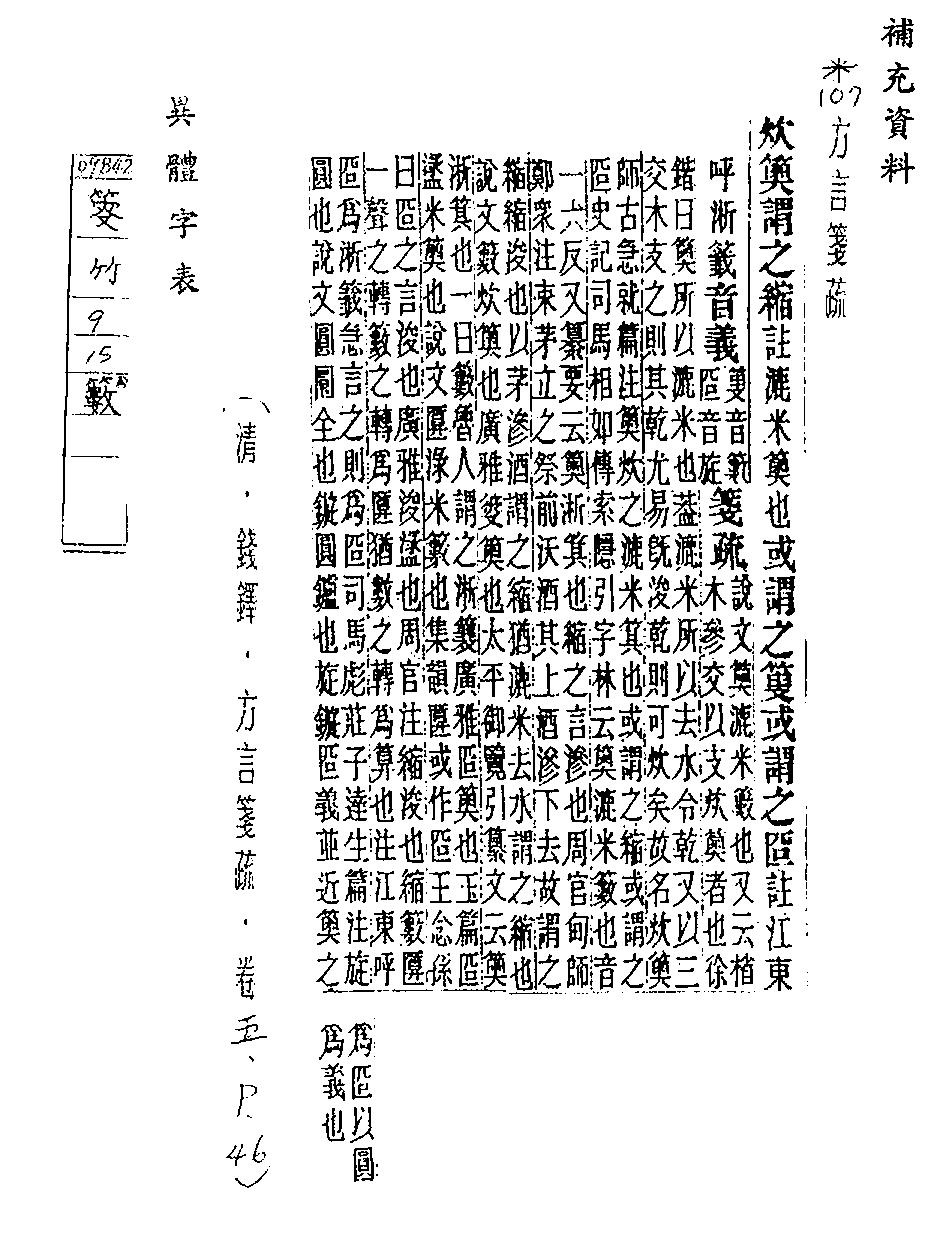 補充資料
107方言箋疏
炊䉛謂之縮註漉米䉛也或謂之䈹或謂之㔯註江東
呼淅籤音義䈹音籔㔯音旋箋疏
說文䉛漉米籔也又云㮴
木參交以支炊䉛者也徐
鍇曰䉛所以漉米也葢漉米所以去水令乾又以三
交木支之則其乾尤易既浚乾則可炊矣故名炊䉛
師古急就篇注䉛炊之漉米箕也或謂之縮或謂之
㔯史記司馬相如傳索隱引字林云䉛漉米籔也音
一六反又纂要云䉛淅箕也縮之言滲也周官甸師
鄭衆注束茅立之祭前沃酒其上酒滲下去故謂之
縮縮浚也以茅滲酒謂之縮猶漉米去水謂之縮也
說文籔炊䉛也廣雅䈹䉛也太平御覽引纂文云䉛
淅箕也一曰籔魯人謂之淅䉛廣雅㔯䉛也玉篇㔯
盝米䉛也說文匴淥米籔也集韻匴或作㔯王念孫
曰㔯之言浚也廣雅浚盝也周官注縮浚也縮籔匴
一聲之轉籔之轉爲匴猶數之轉爲算也注江東呼
㔯爲淅籤急言之則爲㔯司馬彪莊子達生篇注旋
圓也說文圓圜全也鏇圓鑪也旋鏇㔯義並近䉛之
爲㔯以圓
爲義也
(清.錢繹.方言箋疏.卷五、P.46)
異體字表
09842
䈹
竹
9
15
籔